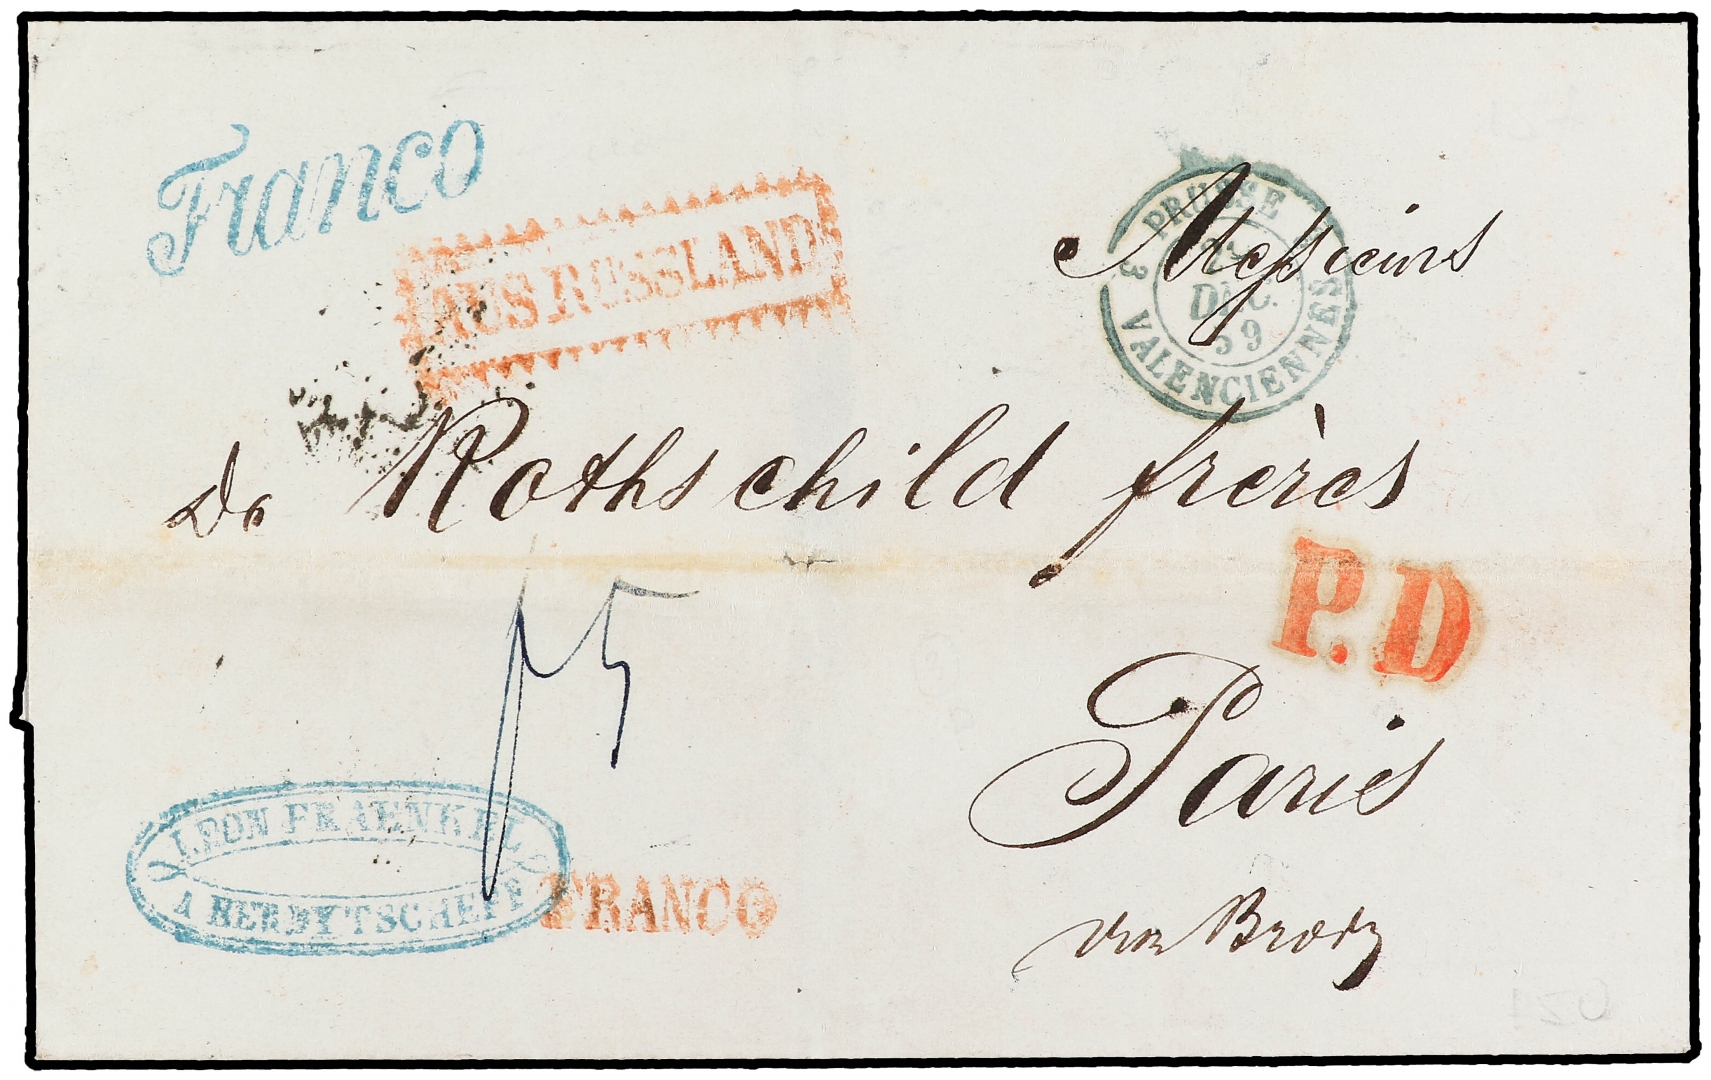 Franco
AUS RUSSLAND
PRUSSE
3 3
DEC.
59
VALENCIENNES
Messieurs
de Rothschild frères
P.D
15
Paris
LEON FRAENKEL
A BERDYTSCHEFF
FRANCO
via Brody